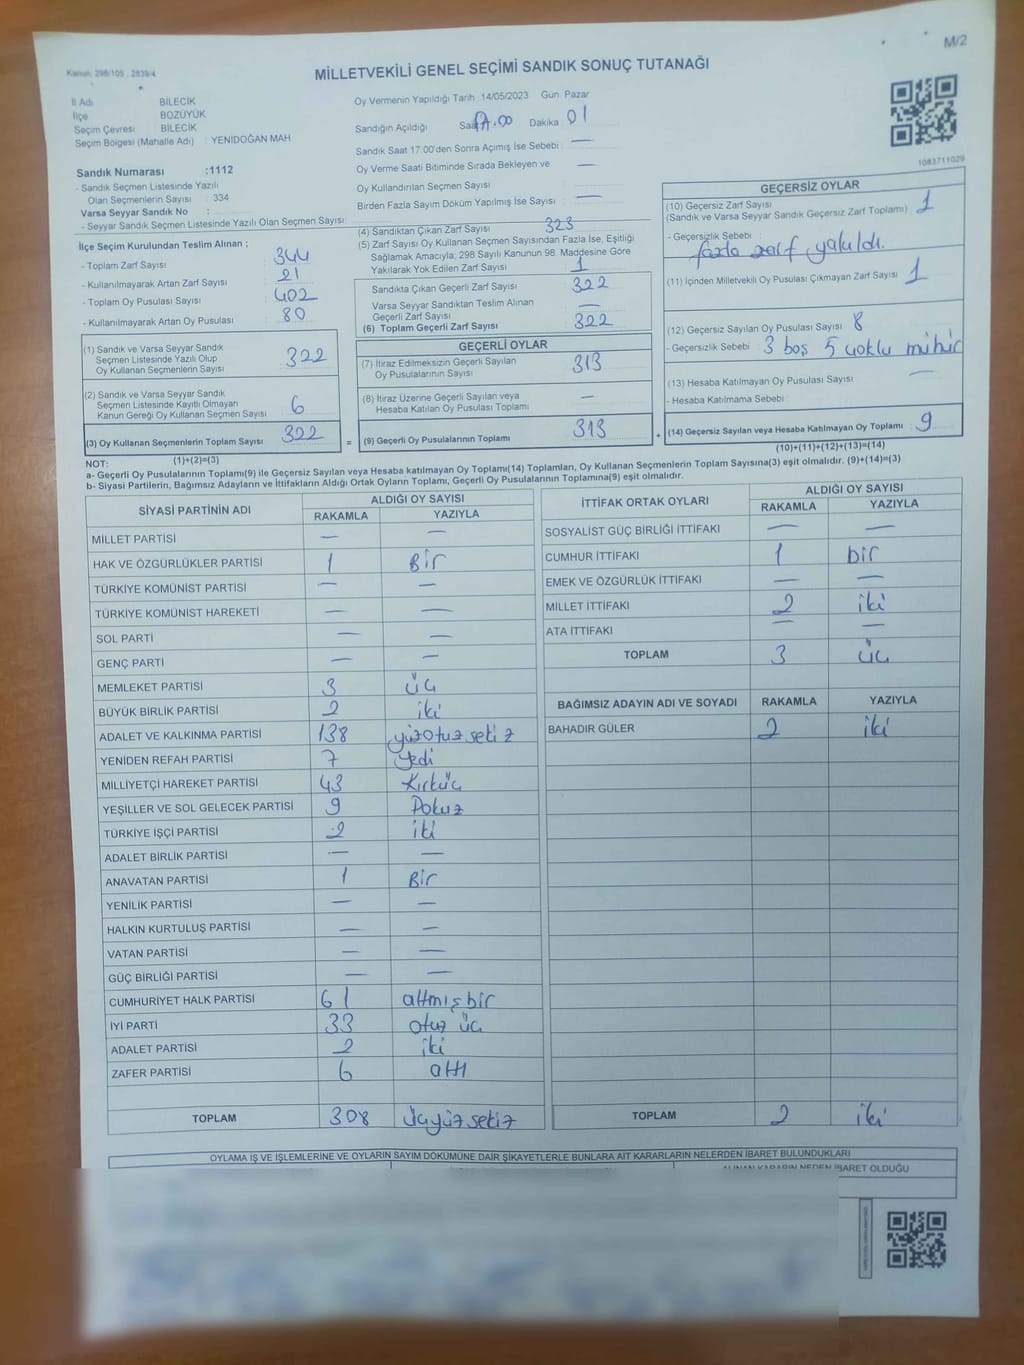 M/2
Kanun: 298/105 , 2839/4
MİLLETVEKİLİ GENEL SEÇİMİ SANDIK SONUÇ TUTANAĞI
İl Adı BİLECİK
İlçe BOZÜYÜK
Seçim Çevresi BİLECİK
Seçim Bölgesi (Mahalle Adı) : YENİDOĞAN MAH
Oy Vermenin Yapıldığı Tarih 14/05/2023 Gün: Pazar
Sandığın Açıldığı Saat 17.00 Dakika 01
Sandık Saat 17:00'den Sonra Açımış İse Sebebi: —
Oy Verme Saati Bitiminde Sırada Bekleyen ve —
Oy Kullandırılan Seçmen Sayısı
Birden Fazla Sayım Döküm Yapılmış İse Sayısı : —
1083711029
Sandık Numarası :1112
- Sandık Seçmen Listesinde Yazılı
Olan Seçmenlerin Sayısı : 334
Varsa Seyyar Sandık No :
- Seyyar Sandık Seçmen Listesinde Yazılı Olan Seçmen Sayısı:
İlçe Seçim Kurulundan Teslim Alınan :
- Toplam Zarf Sayısı : 344
- Kullanılmayarak Artan Zarf Sayısı : 21
- Toplam Oy Pusulası Sayısı : 402
- Kullanılmayarak Artan Oy Pusulası : 80
(1) Sandık ve Varsa Seyyar Sandık
Seçmen Listesinde Yazılı Olup
Oy Kullanan Seçmenlerin Sayısı : 322
(2) Sandık ve Varsa Seyyar Sandık
Seçmen Listesinde Kayıtlı Olmayan
Kanun Gereği Oy Kullanan Seçmen Sayısı : 6
(3) Oy Kullanan Seçmenlerin Toplam Sayısı : 322
(1)+(2)=(3)
(4) Sandıktan Çıkan Zarf Sayısı : 323
(5) Zarf Sayısı Oy Kullanan Seçmen Sayısından Fazla İse, Eşitliği
Sağlamak Amacıyla; 298 Sayılı Kanunun 98. Maddesine Göre
Yakılarak Yok Edilen Zarf Sayısı : 1
Sandıkta Çıkan Geçerli Zarf Sayısı : 322
Varsa Seyyar Sandıktan Teslim Alınan
Geçerli Zarf Sayısı : —
(6) Toplam Geçerli Zarf Sayısı : 322
GEÇERLİ OYLAR
(7) İtiraz Edilmeksizin Geçerli Sayılan
Oy Pusulalarının Sayısı : 313
(8) İtiraz Üzerine Geçerli Sayılan veya
Hesaba Katılan Oy Pusulası Toplamı : —
= (9) Geçerli Oy Pusulalarının Toplamı : 313
GEÇERSİZ OYLAR
(10) Geçersiz Zarf Sayısı : 1
(Sandık ve Varsa Seyyar Sandık Geçersiz Zarf Toplamı)
- Geçersizlik Sebebi :
fazla zarf yakıldı.
(11) İçinden Milletvekili Oy Pusulası Çıkmayan Zarf Sayısı : 1
(12) Geçersiz Sayılan Oy Pusulası Sayısı : 8
- Geçersizlik Sebebi 3 boş 5 çoklu mühür
(13) Hesaba Katılmayan Oy Pusulası Sayısı : —
- Hesaba Katılmama Sebebi :
+ (14) Geçersiz Sayılan veya Hesaba Katılmayan Oy Toplamı : 9
(10)+(11)+(12)+(13)=(14)
NOT:
a- Geçerli Oy Pusulalarının Toplamı(9) ile Geçersiz Sayılan veya Hesaba katılmayan Oy Toplamı(14) Toplamları, Oy Kullanan Seçmenlerin Toplam Sayısına(3) eşit olmalıdır. (9)+(14)=(3)
b- Siyasi Partilerin, Bağımsız Adayların ve İttifakların Aldığı Ortak Oyların Toplamı, Geçerli Oy Pusulalarının Toplamına(9) eşit olmalıdır.
SİYASİ PARTİNİN ADI ALDIĞI OY SAYISI
RAKAMLA YAZIYLA
MİLLET PARTİSİ — —
HAK VE ÖZGÜRLÜKLER PARTİSİ 1 Bir
TÜRKİYE KOMÜNİST PARTİSİ — —
TÜRKİYE KOMÜNİST HAREKETİ — —
SOL PARTİ — —
GENÇ PARTİ — —
MEMLEKET PARTİSİ 3 üç
BÜYÜK BİRLİK PARTİSİ 2 iki
ADALET VE KALKINMA PARTİSİ 138 yüzotuz sekiz
YENİDEN REFAH PARTİSİ 7 Yedi
MİLLİYETÇİ HAREKET PARTİSİ 43 Kırküç
YEŞİLLER VE SOL GELECEK PARTİSİ 9 Dokuz
TÜRKİYE İŞÇİ PARTİSİ 2 iki
ADALET BİRLİK PARTİSİ — —
ANAVATAN PARTİSİ 1 Bir
YENİLİK PARTİSİ — —
HALKIN KURTULUŞ PARTİSİ — —
VATAN PARTİSİ — —
GÜÇ BİRLİĞİ PARTİSİ — —
CUMHURİYET HALK PARTİSİ 61 altmışbir
İYİ PARTİ 33 otuz üç
ADALET PARTİSİ 2 iki
ZAFER PARTİSİ 6 altı
TOPLAM 308 üçyüz sekiz
İTTİFAK ORTAK OYLARI ALDIĞI OY SAYISI
RAKAMLA YAZIYLA
SOSYALİST GÜÇ BİRLİĞİ İTTİFAKI — —
CUMHUR İTTİFAKI 1 bir
EMEK VE ÖZGÜRLÜK İTTİFAKI — —
MİLLET İTTİFAKI 2 iki
ATA İTTİFAKI — —
TOPLAM 3 üç
BAĞIMSIZ ADAYIN ADI VE SOYADI RAKAMLA YAZIYLA
BAHADIR GÜLER 2 iki
TOPLAM 2 iki
OYLAMA İŞ VE İŞLEMLERİNE VE OYLARIN SAYIM DÖKÜMÜNE DAİR ŞİKAYETLERLE BUNLARA AİT KARARLARIN NELERDEN İBARET BULUNDUKLARI
ALINAN KARARIN NEDEN İBARET OLDUĞU